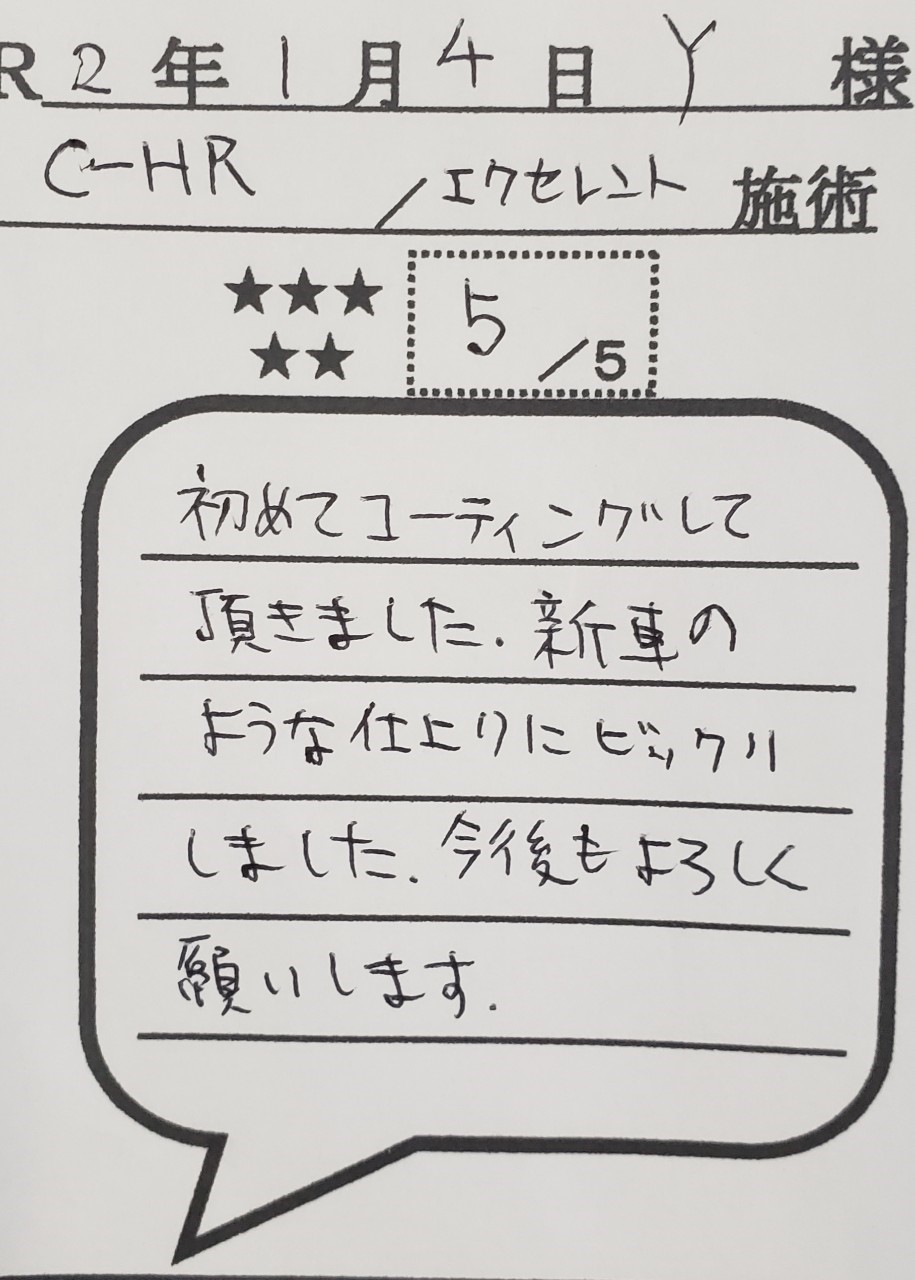 R2年1月4日 Y 様
C-HR /エクセレント 施術
★★★
★★
5/5
初めてコーティングして
頂きました.新車の
ような仕上りにビックリ
しました.今後もよろしく
願いします.